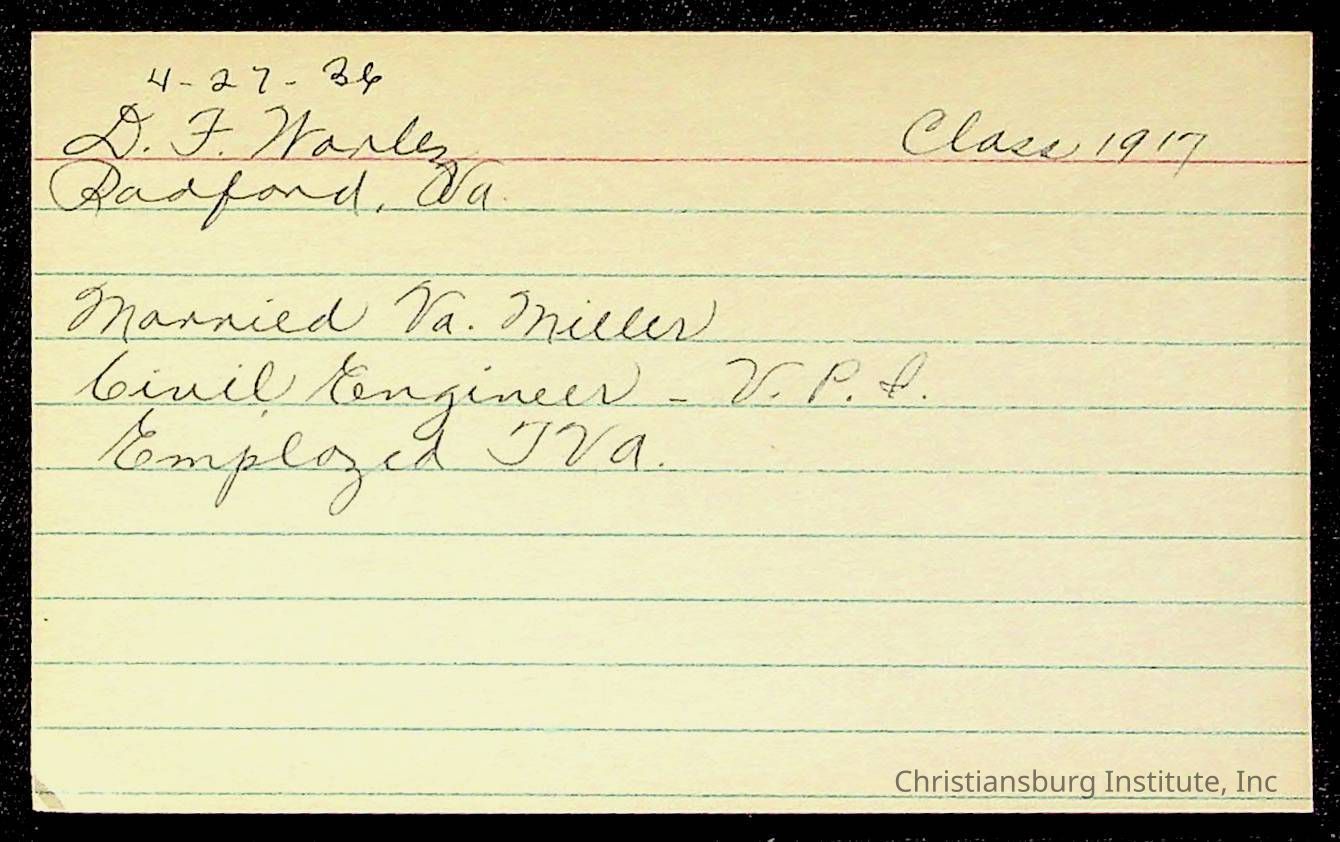 4-27-36
D. F. Worley Class 1917
Radford, Va.
Married Va. Miller
Civil Engineer - V. P. I.
Employed TVA.
Christiansburg Institute, Inc